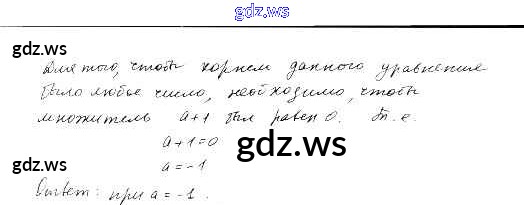 gdz.ws
gdz.ws
Для того, чтобы корнем данного уравнения
было любое число, необходимо, чтобы
множитель a+1 был равен 0. Т.е.
a+1=0
gdz.ws
a=-1
gdz.ws
Ответ: при a=-1.